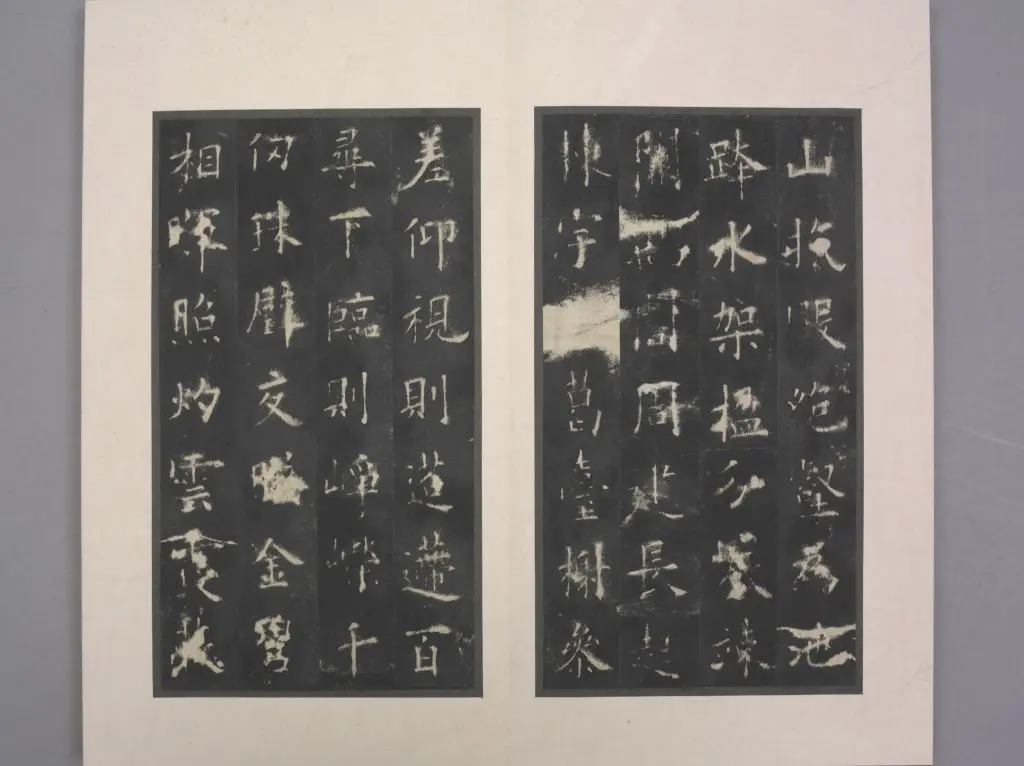 山抗殿絕壑為池
跨水架楹分巖竦
闕閣周建長起
棟宇葛臺榭參
差仰視則迢遰百
尋下臨則崢嶸千
仞珠璧交映金碧
相暉照灼雲霞蔽